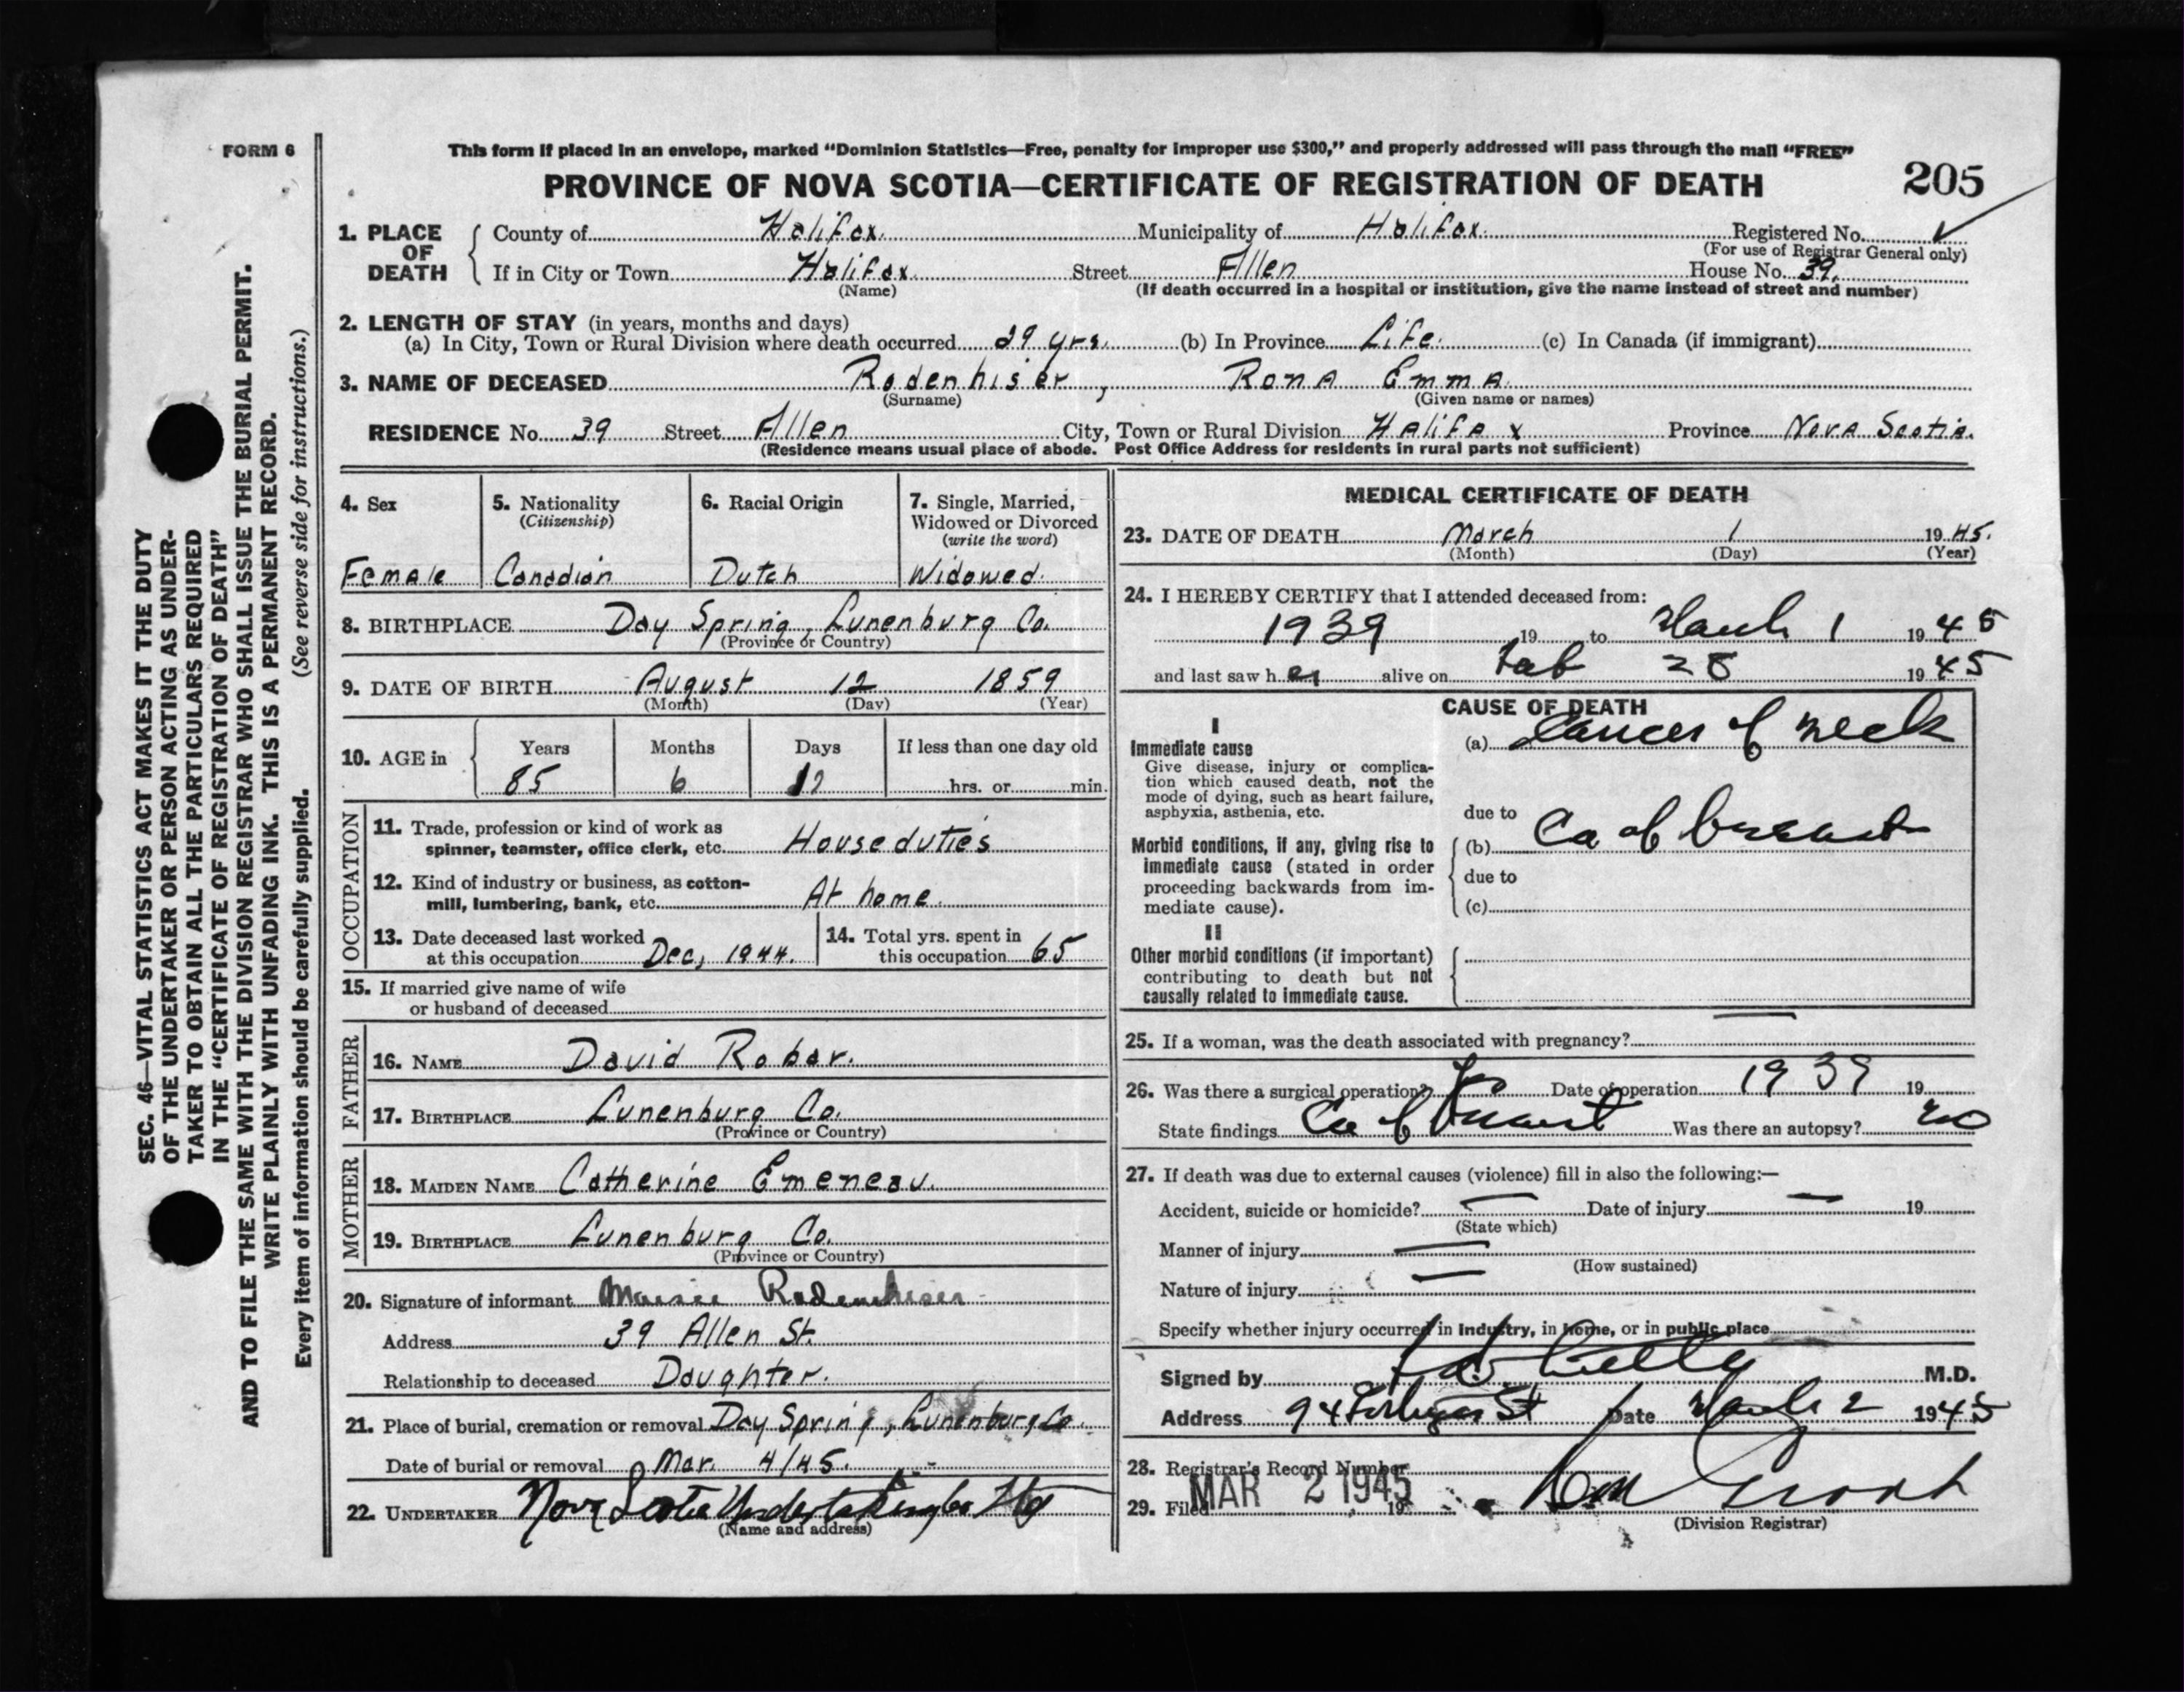 FORM 6
This form if placed in an envelope, marked “Dominion Statistics—Free, penalty for improper use $300,” and properly addressed will pass through the mail “FREE”
PROVINCE OF NOVA SCOTIA—CERTIFICATE OF REGISTRATION OF DEATH
205
1. PLACE OF DEATH
County of Halifax. Municipality of Halifax. Registered No.
(For use of Registrar General only)
If in City or Town Halifax Street Allen House No. 39.
(Name) (If death occurred in a hospital or institution, give the name instead of street and number)
2. LENGTH OF STAY (in years, months and days)
(a) In City, Town or Rural Division where death occurred 29 yrs. (b) In Province Life. (c) In Canada (if immigrant)
3. NAME OF DECEASED Rodenhiser, Rona Emma.
(Surname) (Given name or names)
RESIDENCE No. 39 Street Allen City, Town or Rural Division Halifax Province Nova Scotia.
(Residence means usual place of abode. Post Office Address for residents in rural parts not sufficient)
4. Sex
Female
5. Nationality
(Citizenship)
Canadian
6. Racial Origin
Dutch
7. Single, Married,
Widowed or Divorced
(write the word)
Widowed.
8. BIRTHPLACE Day Spring, Lunenburg Co.
(Province or Country)
9. DATE OF BIRTH August 12 1859
(Month) (Day) (Year)
10. AGE in
Years Months Days If less than one day old
85 6 hrs. or min.
OCCUPATION
11. Trade, profession or kind of work as
spinner, teamster, office clerk, etc. House duties
12. Kind of industry or business, as cotton-
mill, lumbering, bank, etc. At home.
13. Date deceased last worked
at this occupation Dec, 1944.
14. Total yrs. spent in
this occupation 65
15. If married give name of wife
or husband of deceased
FATHER
16. NAME David Robar.
17. BIRTHPLACE Lunenburg Co.
(Province or Country)
MOTHER
18. MAIDEN NAME Catherine Emeneau.
19. BIRTHPLACE Lunenburg Co.
(Province or Country)
20. Signature of informant Rodenhiser
Address 39 Allen St.
Relationship to deceased Daughter.
21. Place of burial, cremation or removal Day Spring, Lunenburg Co.
Date of burial or removal Mar. 4/45.
22. UNDERTAKER Nova Scotia Undertaking Co Hfx
(Name and address)
MEDICAL CERTIFICATE OF DEATH
23. DATE OF DEATH March 1 1945.
(Month) (Day) (Year)
24. I HEREBY CERTIFY that I attended deceased from:
1939 19 to March 1 1945
and last saw her alive on Feb 28 1945
CAUSE OF DEATH
I
Immediate cause
Give disease, injury or complica-
tion which caused death, not the
mode of dying, such as heart failure,
asphyxia, asthenia, etc.
(a) Cancer of neck
due to
Morbid conditions, if any, giving rise to
immediate cause (stated in order
proceeding backwards from im-
mediate cause).
(b) Ca of breast
due to
(c)
II
Other morbid conditions (if important)
contributing to death but not
causally related to immediate cause.
25. If a woman, was the death associated with pregnancy? —
26. Was there a surgical operation? Yes Date of operation 1939 19
State findings Ca of breast Was there an autopsy? no
27. If death was due to external causes (violence) fill in also the following:—
Accident, suicide or homicide? — Date of injury — 19
(State which)
Manner of injury —
(How sustained)
Nature of injury —
Specify whether injury occurred in industry, in home, or in public place
Signed by M.D.
Address 94 St Date March 2 1945
28. Registrar's Record Number
29. Filed MAR 2 1945 19
(Division Registrar)
SEC. 46—VITAL STATISTICS ACT MAKES IT THE DUTY
OF THE UNDERTAKER OR PERSON ACTING AS UNDER-
TAKER TO OBTAIN ALL THE PARTICULARS REQUIRED
IN THE “CERTIFICATE OF REGISTRATION OF DEATH”
AND TO FILE THE SAME WITH THE DIVISION REGISTRAR WHO SHALL ISSUE THE BURIAL PERMIT.
WRITE PLAINLY WITH UNFADING INK. THIS IS A PERMANENT RECORD.
Every item of information should be carefully supplied. (See reverse side for instructions.)